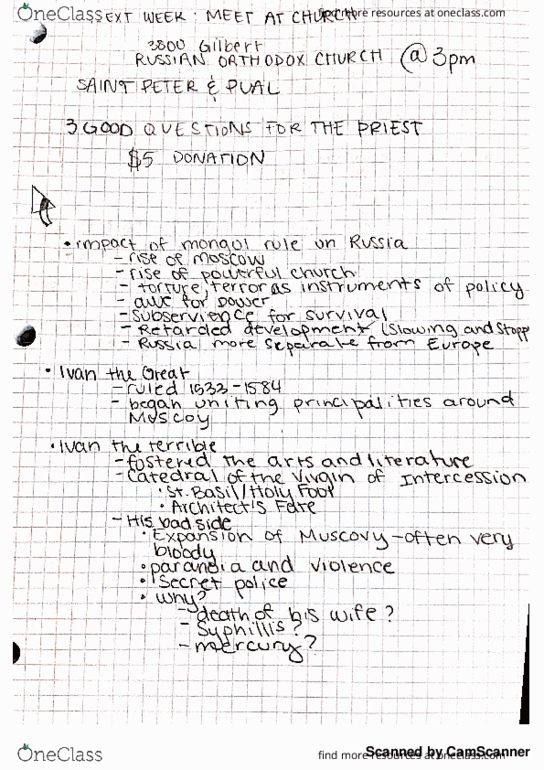 OneClass EXT WEEK: MEET AT CHURCH find more resources at oneclass.com
3800 Gilbert
RUSSIAN ORTHODOX CHURCH @ 3pm
SAINT PETER & PUAL
3 GOOD QUESTIONS FOR THE PRIEST
$5 DONATION
• impact of mongol rule on Russia
- rise of Moscow
- rise of powerful church
- torture, terror as instruments of policy
- awe for power
- Subservience for survival
- Retarded development (Slowing and Stopp
- Russia more separate from Europe
• Ivan the Great
- ruled 1533-1584
- began uniting principalities around
Muscoy
• Ivan the terrible
- fostered the arts and literature
- Catedral of the Virgin of Intercession
• St. Basil/Holy Fool
• Architect's Fate
- His bad side
• Expansion of Muscovy - often very
bloody
• paranoia and violence
• Secret police
• why?
- death of his wife?
- Syphillis?
- mercury?
OneClass find more resources at oneclass.com
Scanned by CamScanner